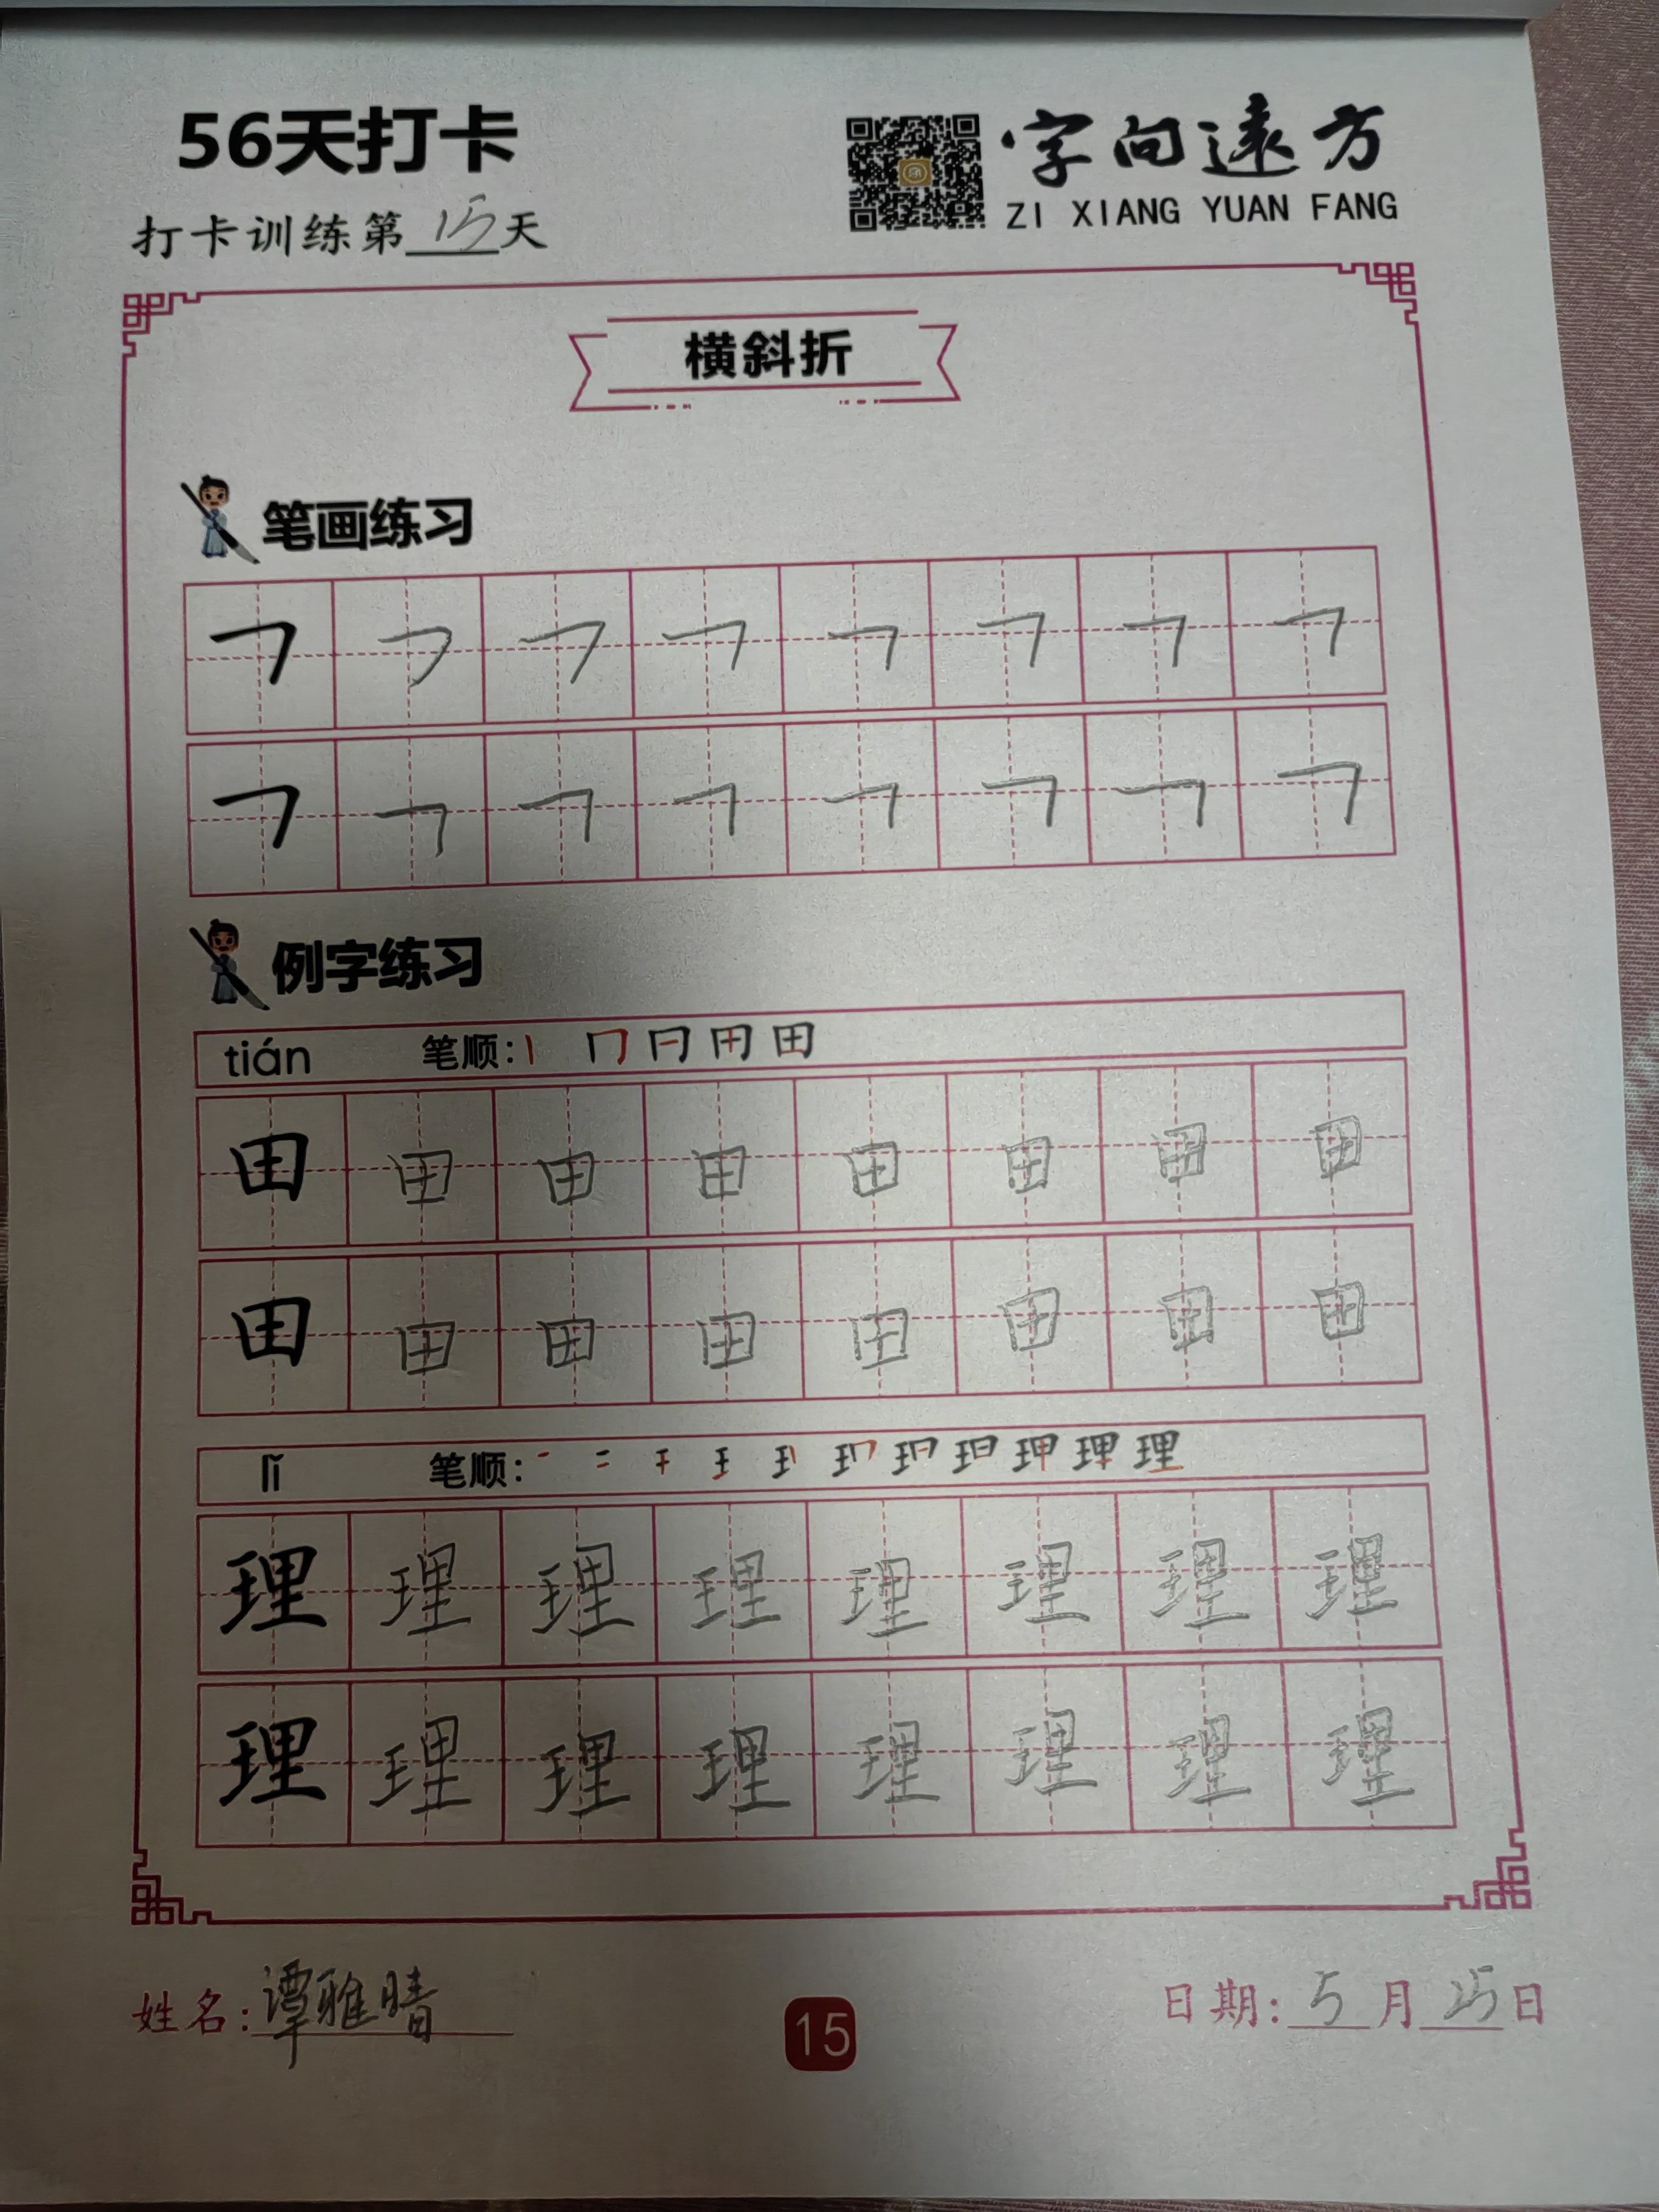 56天打卡
字向遠方
ZI XIANG YUAN FANG
打卡训练第15天
横斜折
笔画练习
㇕ ㇕ ㇕ ㇕ ㇕ ㇕ ㇕ ㇕
㇕ ㇕ ㇕ ㇕ ㇕ ㇕ ㇕ ㇕
例字练习
tián 笔顺:
田 田 田 田 田 田 田 田
田 田 田 田 田 田 田 田
lǐ 笔顺:
理 理 理 理 理 理 理 理
理 理 理 理 理 理 理 理
姓名:谭雅晴
15
日期:5月25日